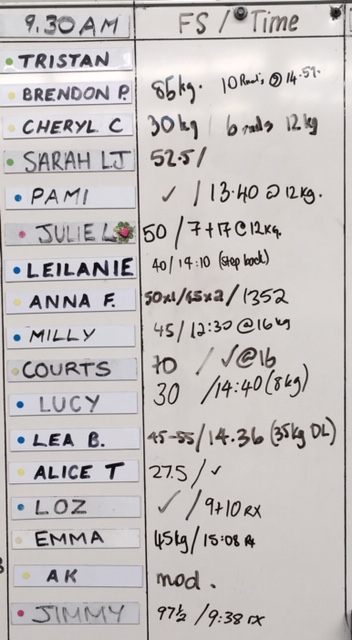 9.30AM FS / Time
TRISTAN
BRENDON P. 85kg. 10 Rnds @ 14.59.
CHERYL C 30kg | 6 rnds 12kg
SARAH LJ 52.5 /
PAMI ✓ / 13.40 @ 12kg.
JULIE L 50 / 7+17 @ 12kg.
LEILANIE 40 / 14:10 (Step back)
ANNA F. 50x1/45x2 / 1352
MILLY 45 / 12:30 @ 16kg
COURTS 70 / ✓ @ 16
LUCY 30 / 14:40 (8kg)
LEA B. 45-55 / 14.36 (35kg DL)
ALICE T 27.5 / ✓
LOZ ✓ / 9+10 RX
EMMA 45kg / 15:08
AK mod.
JIMMY 97½ / 9:38 rx